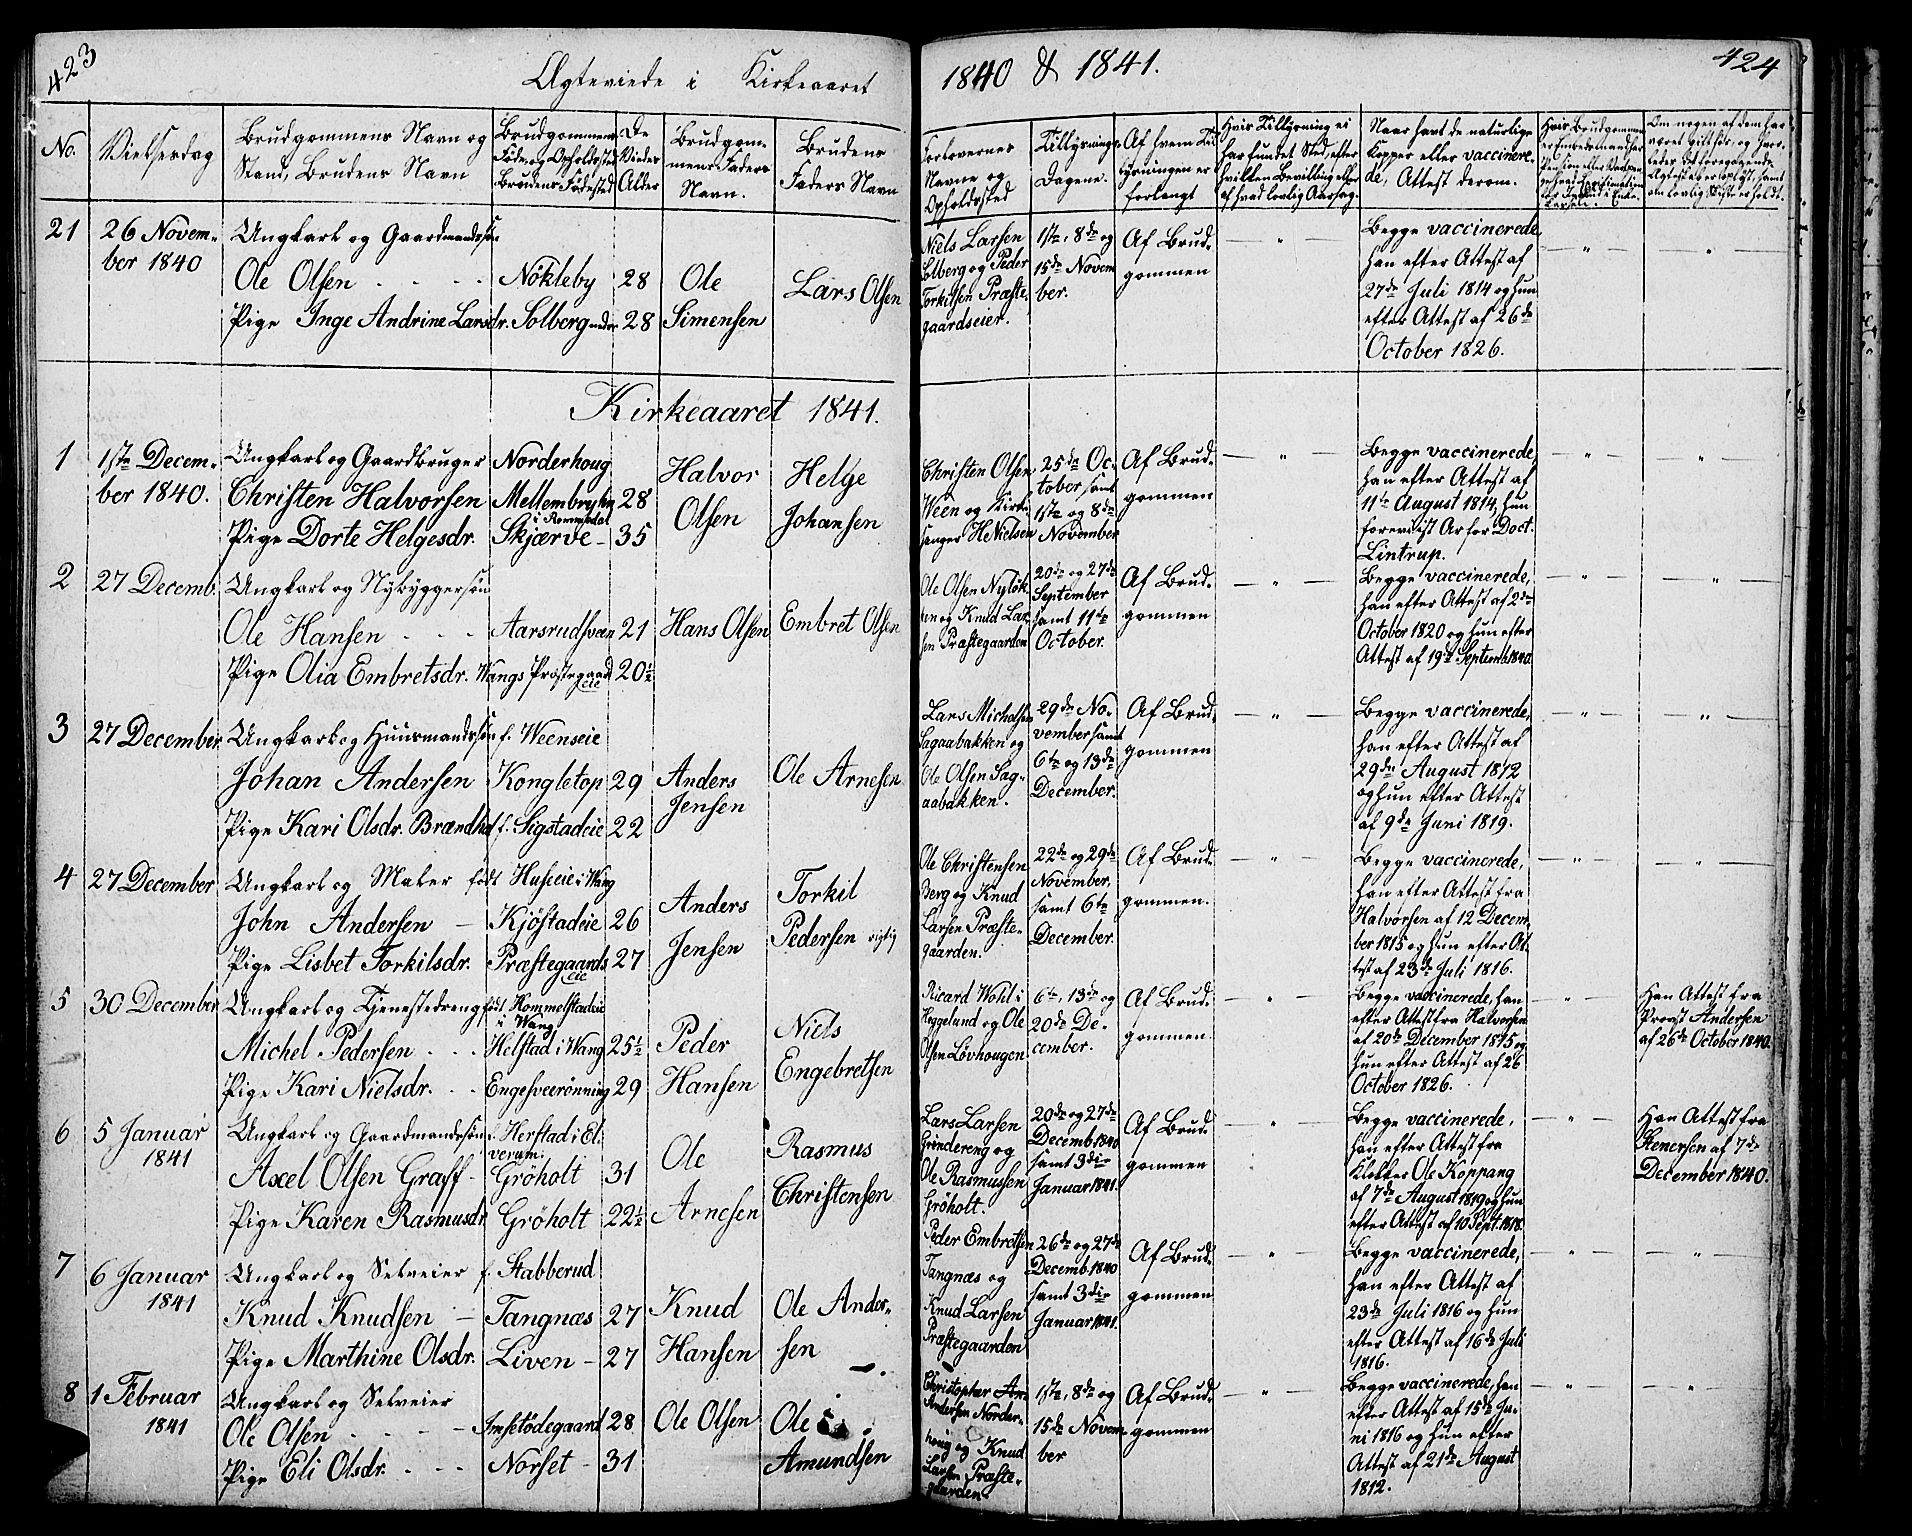 423
Ægteviede i Kirkeaaret
1840 & 1841.
424
No.
Vielsesdag
Brudgommens Navn og
Stand, Brudens Navn
Brudgommens
Føde og Opholdssted
Brudens Fødested
De
Viedes
Alder
Brudgom-
mens Faders
Navn.
Brudens
Faders Navn
Forlovernes
Navne og
Opholdssted
Tillysnings-
Dagene.
Af hvem Til-
lysningen er
forlangt
Hvis Tillysning ei
har fundet Sted, efter
hvilken Bevilling eller
af hvad lovlig Aarsag.
Naar havt de naturlige
Kopper eller vaccinere-
de, Attest derom.
21
26 Novem-
ber 1840
Ungkarl og Gaardmandssøn
Ole Olsen
Nökleby
28
Pige Inge Andrine Larsdr.
Solberg nedre
28
Ole
Simensen
Lars Olsen
Niels Larsen
Solberg og Peder
Torkilsen Præste-
gaardseier.
1ste, 8de og
15de Novem
ber.
Af Brud-
gommen
Begge vaccinerede
han efter Attest af
27de Juli 1814 og hun
efter Attest af 26de
October 1826.
Kirkeaaret 1841.
1
1ste Decem-
ber 1840.
Ungkarl og Gaardbruger
Christen Halvorsen
Pige Dorte Helgesdr.
Norderhoug
Mellembye
i Rommedal
Skjærve
28
35
Halvor
Olsen
Helge
Johansen
Christen Olsen
Ween og Kirke
sanger H Nielsen
25de Oc-
tober samt
1ste og 8de
November
Af Brud-
gommen
Begge vaccinerede
han efter Attest af
11te August 1814, hun
foreviist Ar for Doct.
Lintrup.
2
27 Decemb.
Ungkarl og Nybyggersøn
Ole Hansen
Pige Olia Embretsdr.
Aarsrudsveen
Wangs Præstegaards
eie
21
20½
Hans Olsen
Embret Olsen
Ole Olsen Nylök
ken og Knud Lar
sen Præstegaarden
20de og 27de
September
samt 11te
October.
Af Brud-
gommen
Begge vaccinerede,
han efter Attest af 2de
October 1820 og hun efter
Attest af 19de Septemb. 1840.
3
27 December
Ungkarl og Huusmandssøn
Johan Andersen
Pige Kari Olsdr. Brændhol
f. Weenseie
Kongletop
f. Sigstadeie
29
22
Anders
Jensen
Ole Arnesen
Lars Michalsen
Sagaabakken og
Ole Olsen Sag-
aabakken.
29de No-
vember samt
6te og 13de
December.
Af Brud-
gommen
Begge vaccinerede,
han efter Attest af
29de August 1812
og hun efter Attest
af 9de Juni 1819.
4
27 December
Ungkarl og Maler
John Andersen
Pige Lisbet Torkilsdr.
født Huseie i Wang
Kjöstadeie
Præstegaards
eie
26
27
Anders
Jensen
Torkil
Pedersen rigtig
Ole Christensen
Berg og Knud
Larsen Præste-
gaarden.
22de og 29de
November,
samt 6te
December.
Af Brud-
gommen.
Begge vaccinerede,
han efter Attest fra
Halvorsen af 12 Decem-
ber 1815 og hun efter At
test af 23de Juli 1816.
5
30 December
Ungkarl og Tjenestedreng
Michel Pedersen
Pige Kari Nielsdr.
født Hommelstadeie
i Wang
Helstad i Wang
Engesveerönning
25½
29
Peder
Hansen
Niels
Engebretsen
Ricard Wohl i
Heggelund og Ole
Olsen Lövhougen
6te, 13de og
20de De-
cember.
Af Brud-
gommen.
Begge vaccinerede, han
efter Attest fra Halvorsen
af 20de December 1815 og
hun efter Attest af 26
October 1826.
Han Attest fra
Provst Andersen
af 26de October 1840.
6
5 Januar
1841
Ungkarl og Gaardmandssøn
Axel Olsen Graff
Pige Karen Rasmusdr
f. Herstad i El-
verum.
Gröholt
Gröholt
31
22½
Ole
Arnesen
Rasmus
Christensen
Lars Larsen
Grindereng og
Ole Rasmussen
Gröholt.
20de og 27de
Decemb. 1840
samt 3die
Januar 1841.
Af Brud-
gommen
Begge vaccinerede,
han efter Attest fra
Klokker Ole Koppang
af 7de August 1819 og hun
efter Attest af 10 Sept. 1818.
Han Attest fra
Stenersen af 7de
December 1840.
7
6 Januar
1841
Ungkarl og Selveier
Knud Knudsen
Pige Marthine Olsdr.
f. Stabberud
Tangnæs
Liven
27
27
Knud
Hansen
Ole Ander-
sen
Peder Embretsen
Tangnæs og
Knud Larsen
Præstegaarden
26de og 27de
Decemb. 1840
samt 3die
Januar 1841.
Af Brud-
gommen
Begge vaccinerede,
han efter Attest af
23de Juli 1816 og hun
efter Attest af 16de Juli
1816.
8
1 Februar
1841
Ungkarl og Selveier
Ole Olsen
Pige Eli Olsdr.
Imsetödegaard
Norset
28
31
Ole Olsen
Ole
Amundsen
Christopher An-
dersen Norder-
houg og Knud
Larsen Præste-
gaarden
1ste, 8de og
15de Novem-
ber
Af Brud-
gommen
Begge vaccinerede, han
efter Attest af 15de Ju-
ni 1816 og hun efter
Attest af 21de August
1812.